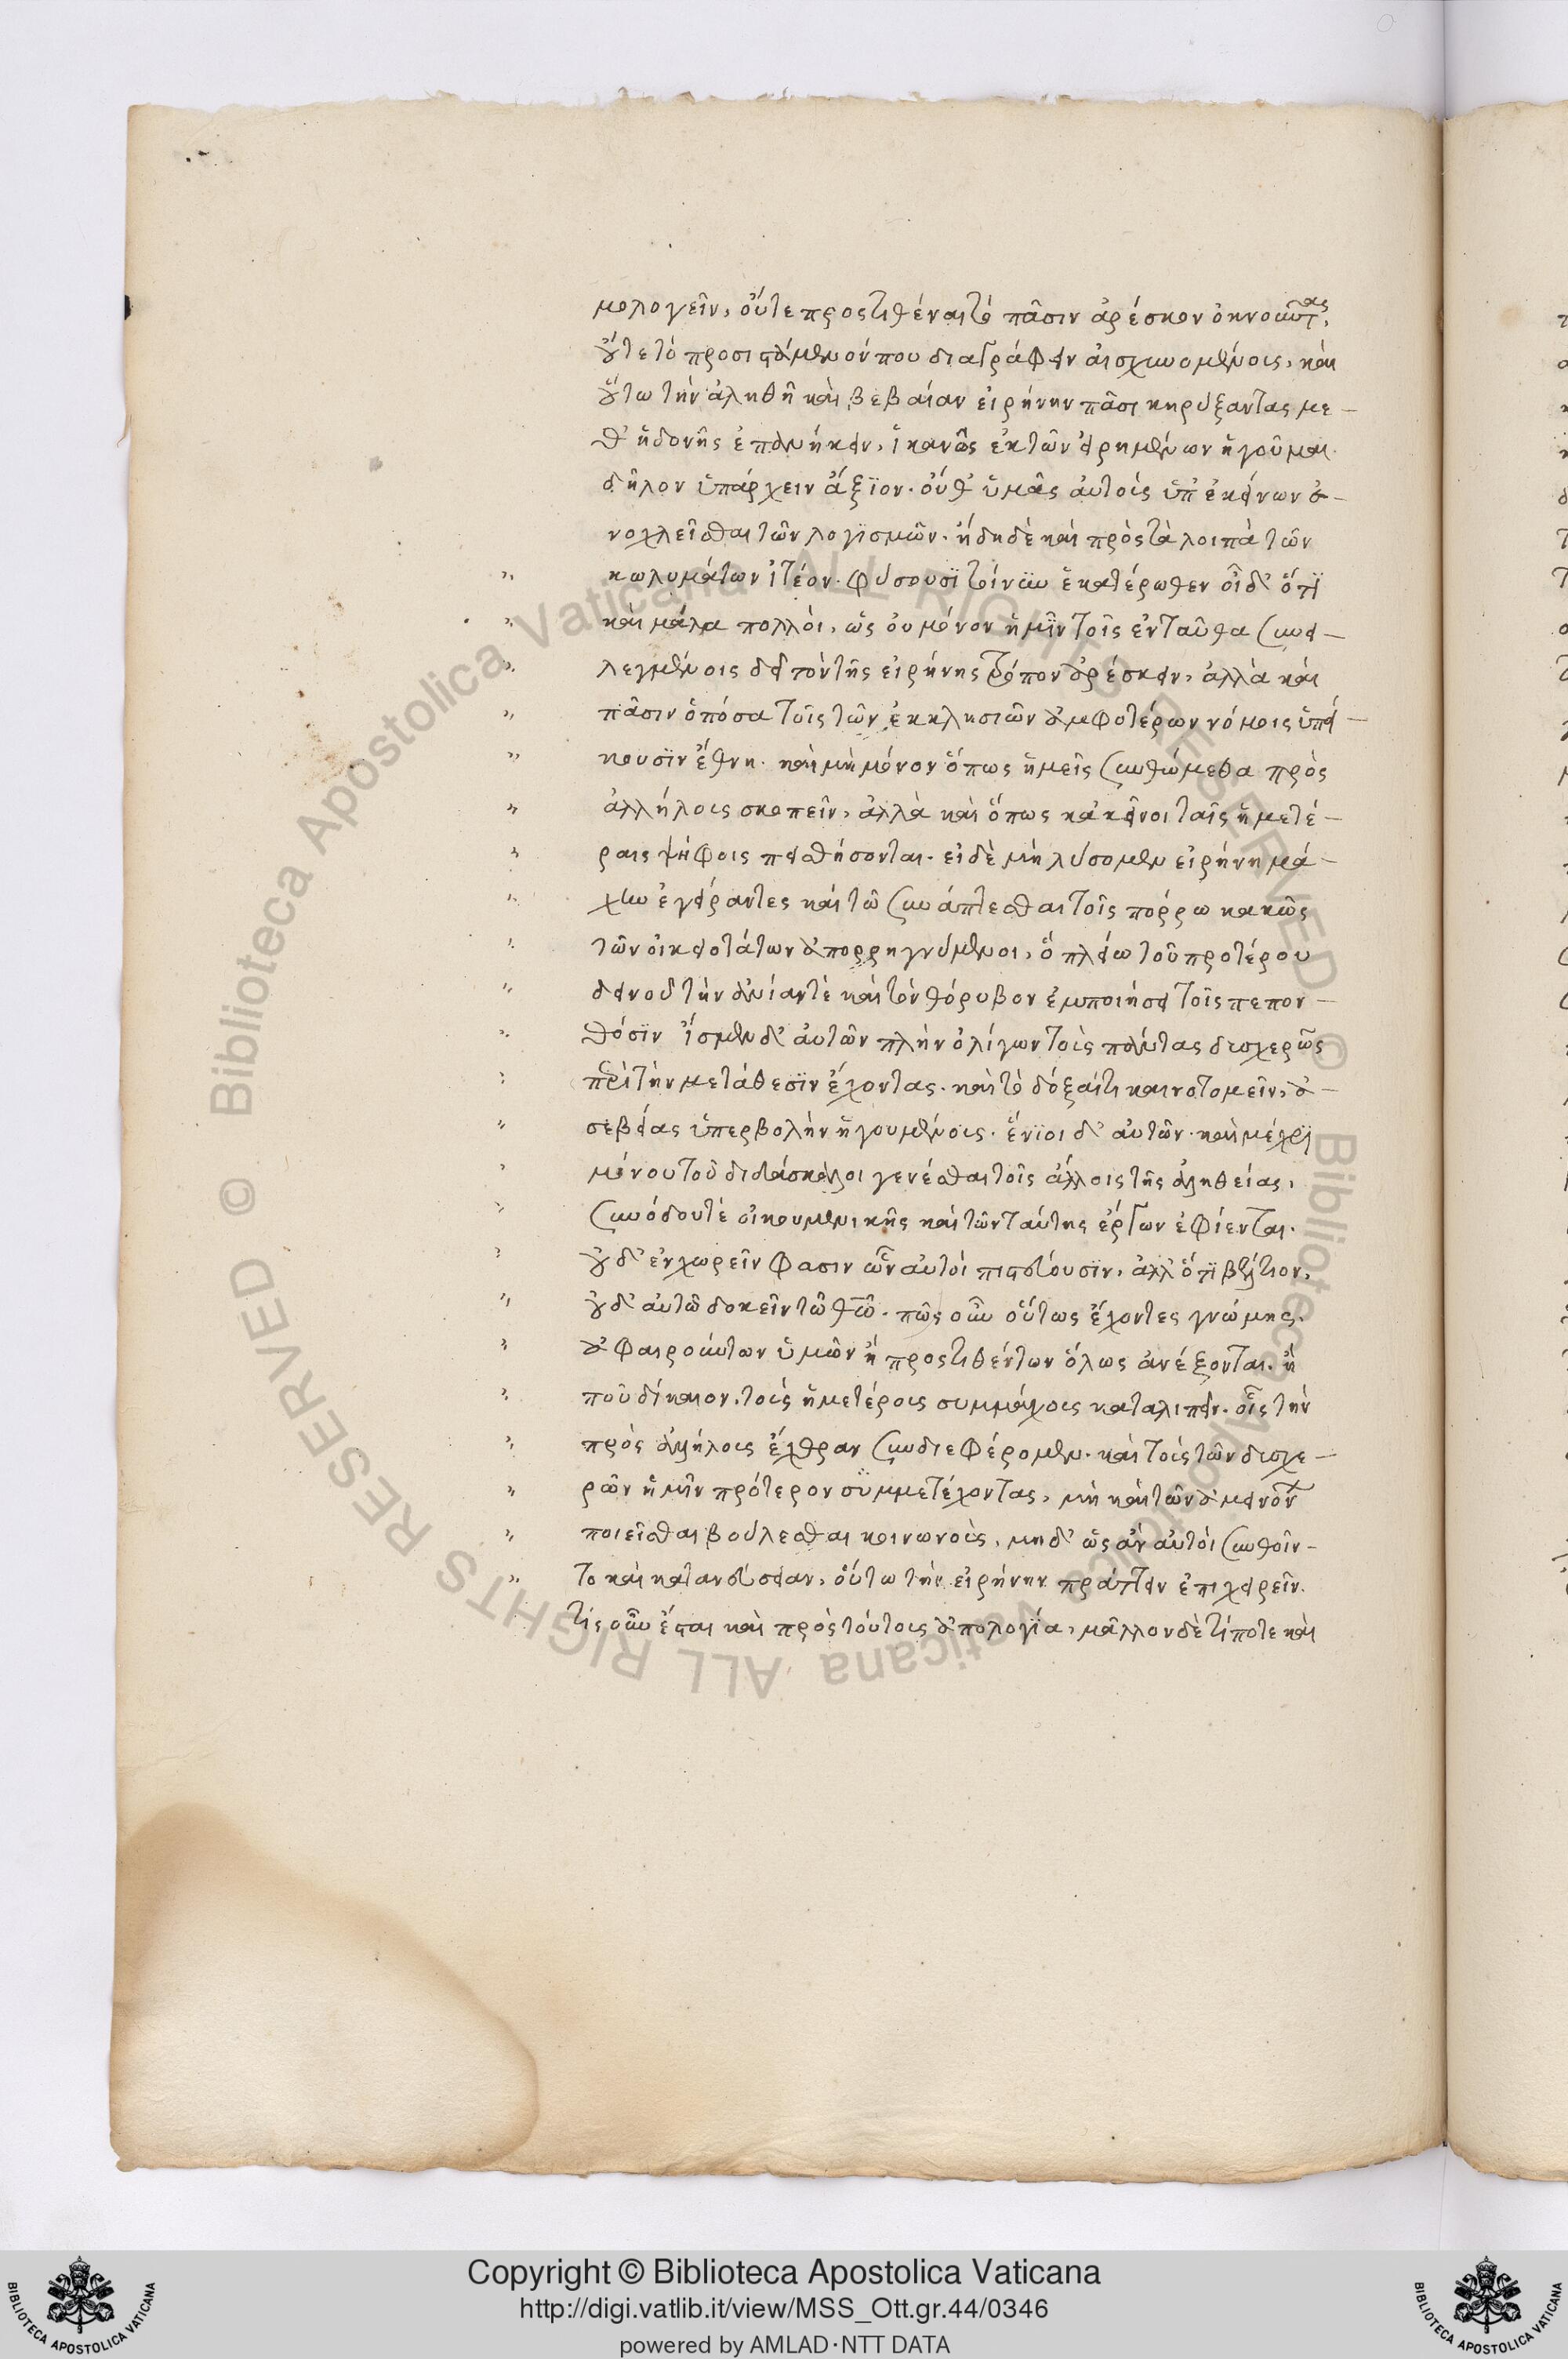 μολογεῖν, οὔτε προστιθέναι τὸ πᾶσιν ἀρέσκον ὀκνοῦντας,
οὔτε τὸ προσιστάμενόν που διαγράφειν αἰσχυνομένοις, καὶ
οὕτω τὴν ἀληθῆ καὶ βεβαίαν εἰρήνην πᾶσι κηρύξαντας με-
θ' ἡδονῆς ἐπανήκειν, ἱκανῶς ἐκ τῶν εἰρημένων ἡγοῦμαι
δῆλον ὑπάρχειν ἄξϊον. οὐθ' ὑμᾶς αὐτοὺς ὑπ' ἐκείνων ἐ-
νοχλεῖσθαι τῶν λογϊσμῶν. ἤδη δὲ καὶ πρὸς τὰ λοιπὰ τῶν
κωλυμάτων ἰτέον. φύσουσϊ τοίνυν ἑκατέρωθεν οἶδ' ὅτϊ
καὶ μάλα πολλοὶ, ὡς οὐ μόνον ἡμῖν τοῖς ἐνταῦθα συνει-
λεγμένοις δεῖ τὸν τῆς εἰρήνης τρόπον ἀρέσκειν, ἀλλὰ καὶ
πᾶσιν ὁπόσα τοῖς τῶν ἐκκλησιῶν ἀμφοτέρων νόμοις ὑπεί-
κουσϊν ἔθνη. καὶ μὴ μόνον ὅπως ἡμεῖς συνθώμεθα πρὸς
ἀλλήλους σκοπεῖν, ἀλλὰ καὶ ὅπως κἀκεῖνοι ταῖς ἡμετέ-
ραις ψήφοις πεισθήσονται. εἰ δὲ μὴ λύσομεν εἰρήνῃ μά-
χην ἐγείραντες καὶ τῶ συνάπτεσθαι τοῖς πόρρω κακῶς
τῶν οἰκειοτάτων ἀπορρηγνύμενοι, ὃ πλείω τοῦ προτέρου
δεινοῦ τὴν ἀνίαν τὲ καὶ τὸν θόρυβον ἐμποιήσει τοῖς πεπον-
θόσϊν ἴσμεν δ' αὐτῶν πλὴν ὀλίγων τοὺς πάντας δυσχερῶς
πρὸς τὴν μετάθεσϊν ἔχοντας. καὶ τὸ δόξαί τι καινοτομεῖν, ἀ-
σεβείας ὑπερβολὴν ἡγουμένους. ἔνϊοι δ' αὐτῶν. καὶ μέχρϊ
μόνου τοῦ διδάσκαλοι γενέσθαι τοῖς ἄλλοις τῆς ἀληθείας,
συνόδου τὲ οἰκουμενικῆς καὶ τῶν ταύτης ἔργων ἐφίενται.
οὐδ' ἐγχωρεῖν φασιν ὧν αὐτοὶ πιστεύουσϊν, ἀλλ' ὅτϊ βέλτιον,
οὐδ' αὐτῶ δοκεῖν τῶ θῶ. πῶς οὖν οὕτως ἔχοντες γνώμης.
ἀφαιρούντων ὑμῶν ἢ προστιθέντων ὅλως ἀνέξονται. ἢ
ποῦ δίκαιον, τοὺς ἡμετέρους συμμάχους καταλιπεῖν. οἷς τὴν
πρὸς ἀλλήλους ἔχθραν συνδιεφέρομεν. καὶ τοὺς τῶν δυσχε-
ρῶν ἡμῖν πρότερον συμμετέχοντας, μὴ καὶ τῶν ἀμεινόνων
ποιεῖσθαι βούλεσθαι κοινωνοὺς, μηδ' ὡς ἂν αὐτοὶ συνθοῖν-
το καὶ κατανεύσειαν, οὕτω τὴν εἰρήνην πράττειν ἐπιχειρεῖν.
τίς οὖν ἔσται καὶ πρὸς τούτους ἀπολογϊα, μᾶλλον δὲ τί ποτε καὶ
Copyright © Biblioteca Apostolica Vaticana
http://digi.vatlib.it/view/MSS_Ott.gr.44/0346
powered by AMLAD·NTT DATA